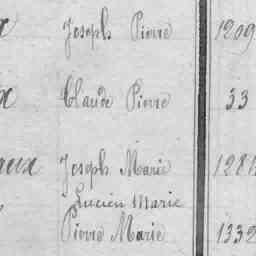 x Joseph Pierre 1209
x Claude Pierre 33
aux Joseph Marie 128
Lucien Marie
Pierre Marie 1332